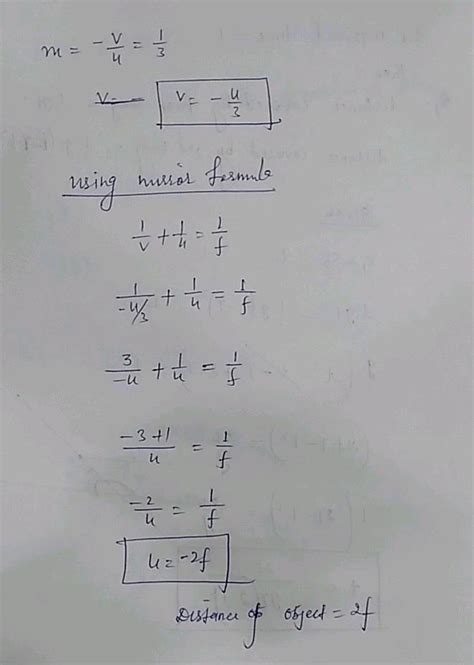 m = -v/u = 1/3
v= v = -u/3
using mirror formula
1/v + 1/u = 1/f
1/-u/3 + 1/u = 1/f
3/-u + 1/u = 1/f
-3+1/u = 1/f
-2/u = 1/f
u = -2f
Distance of object = 2f